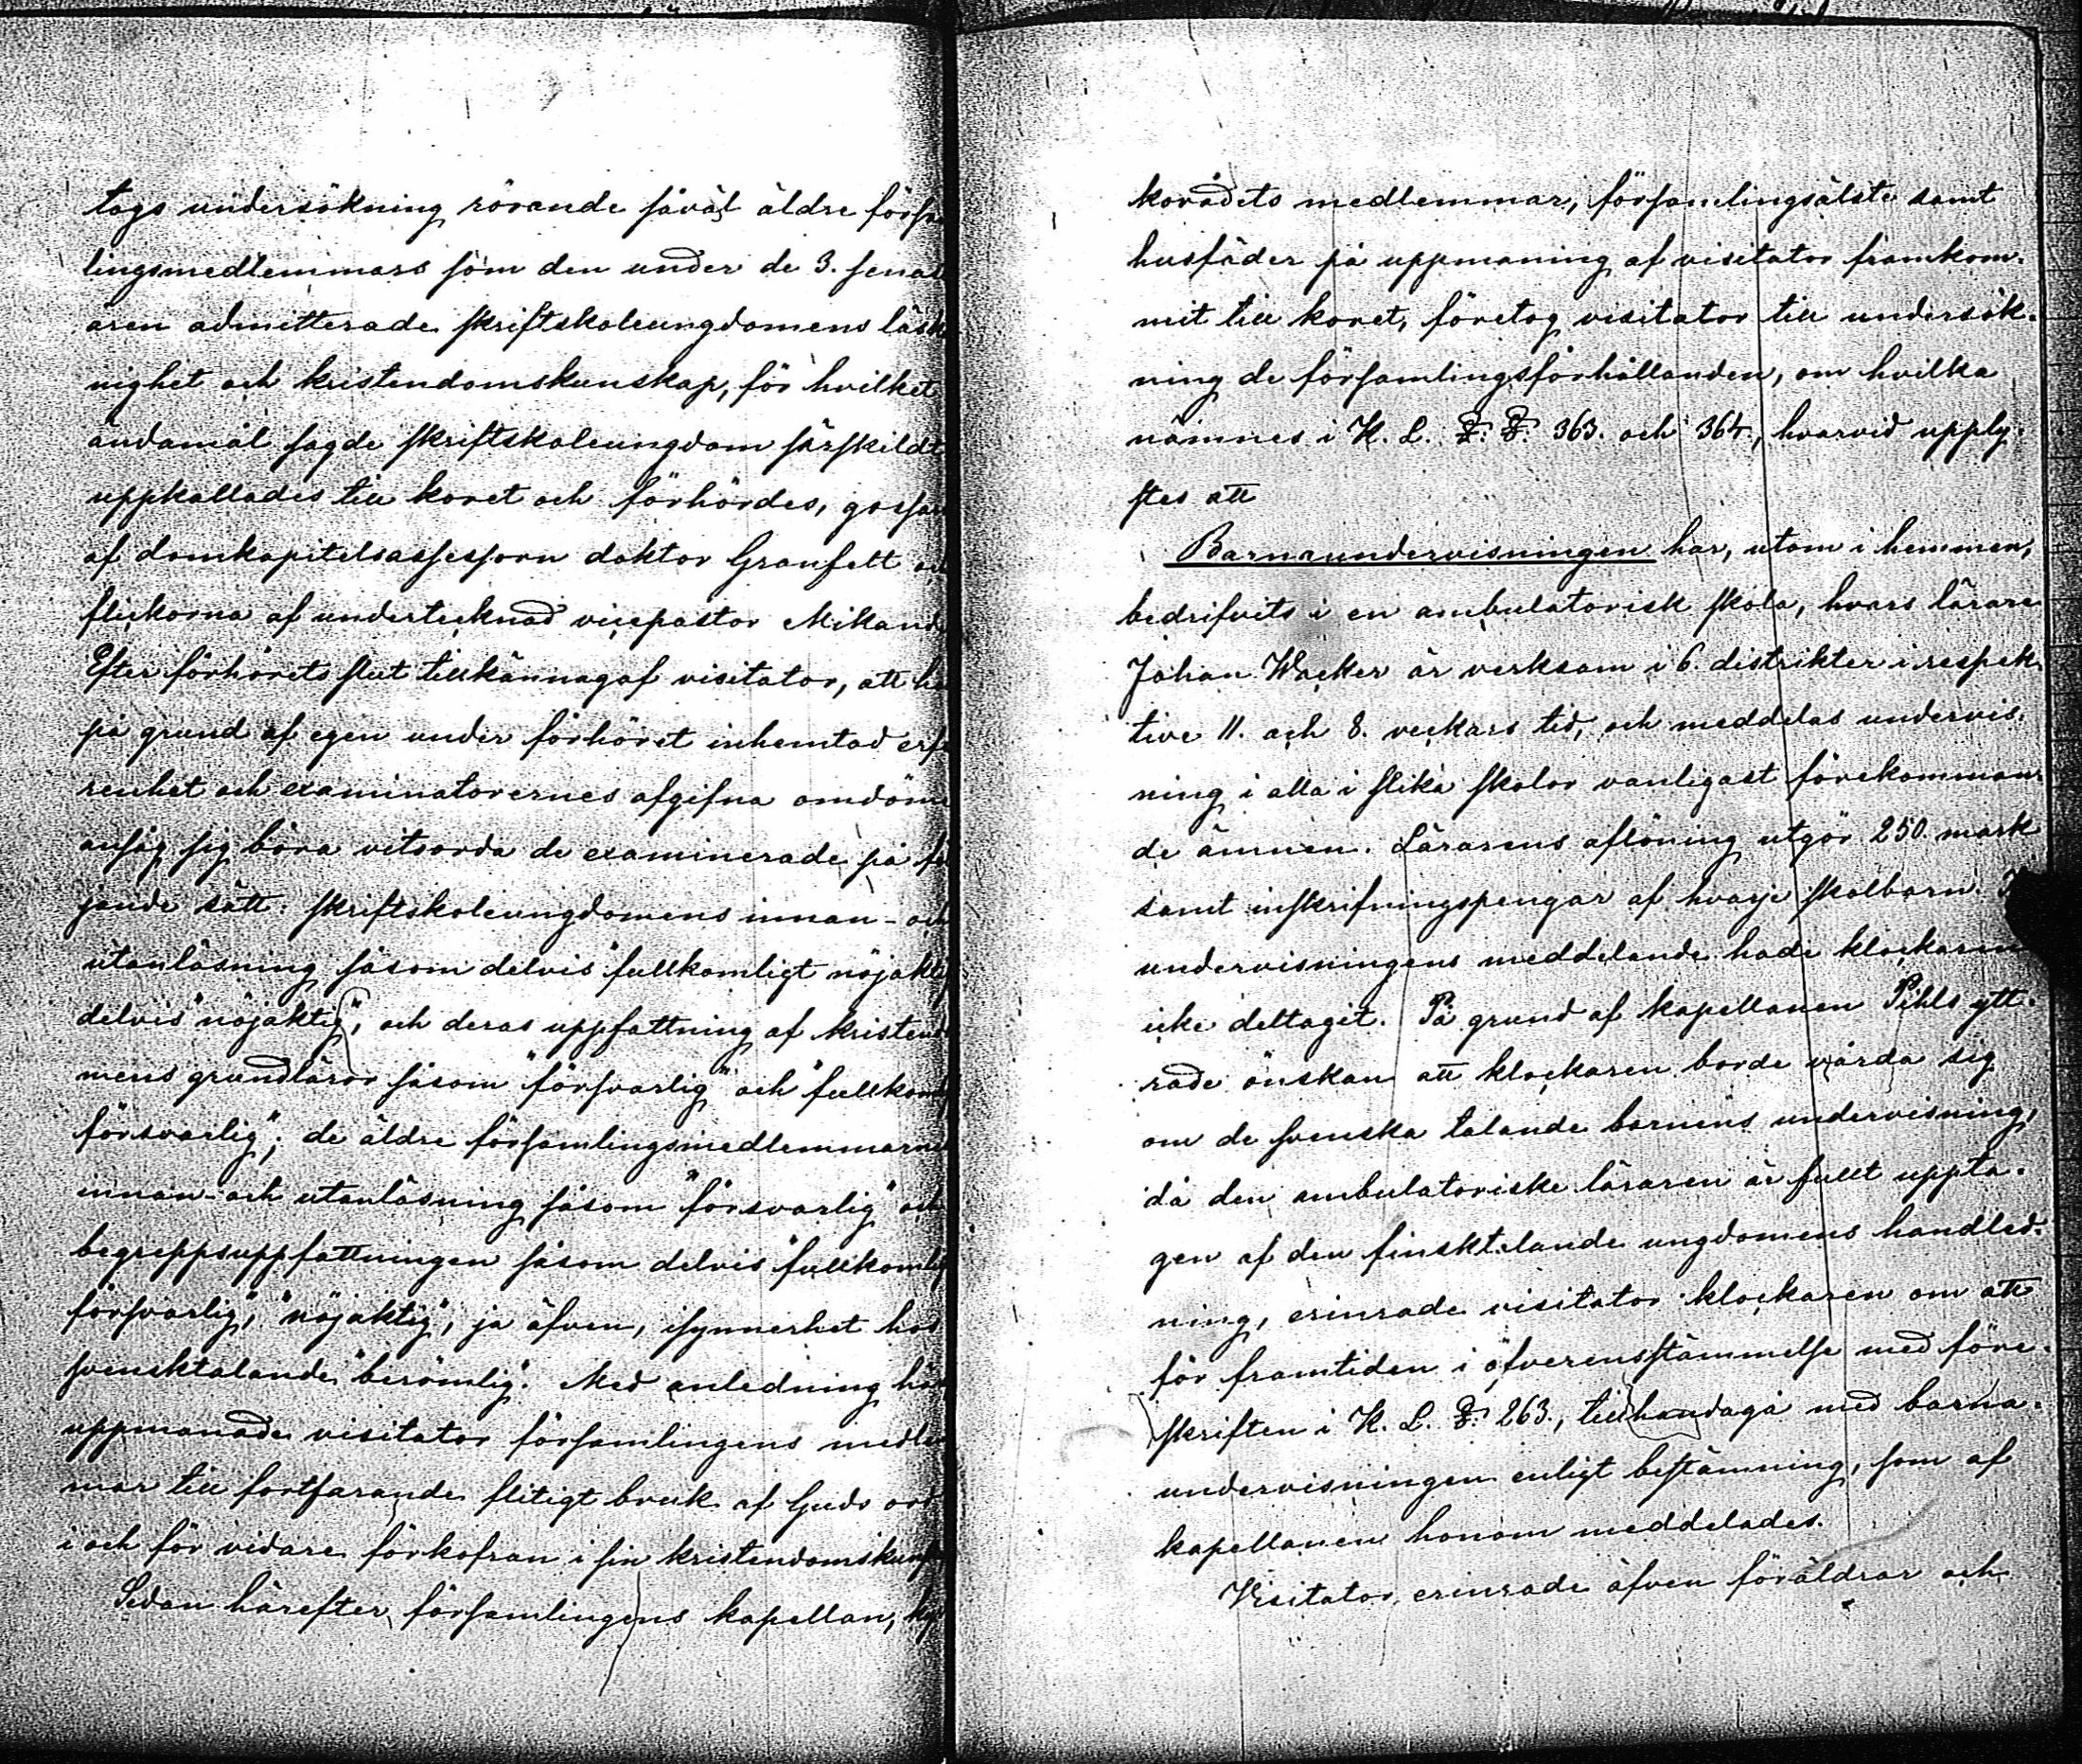 togs undersökning rörande såväl äldre försa
lingsmedlemmars som den under de 3. senas
åren admitterade skriftskoleungdomens läsk
nighet och kristendomskunskap, för hvilket
ändamål sagde skriftskoleungdom särskildt
uppkallades till koret och förhördes, gossar
af domkapitelsassessorn doktor Granfelt oc
flickorna af undertecknad vicepastor Mikand
Efter förhörets slut tillkännagaf visitator, att ha
på grund af egen under förhöret inhemtad erfa
renhet och examinatorernes afgifna omdöme
ansåg sig böra vitsorda de examinerade på föl
jande sätt: skriftskoleungdomens innan- och
utanläsning såsom delvis "fullkomligt nöjaktig
delvis "nöjaktig", och deras uppfattning af kristendo
mens grundläror såsom "försvarlig" och "fullkoml
försvarlig"; de äldre församlingsmedlemmarnes
innan- och utanläsning såsom "försvarlig" och
begreppsuppfattningen såsom delvis "fullkomlig
försvarlig", "nöjaktig", ja äfven, isynnerhet hos
svensktalande "berömlig". Med anledning häraf
uppmanade visitator församlingens medlem
mar till fortfarande flitigt bruk af Guds ord
i och för vidare förkofran i sin kristendomskunsk
Sedan härefter församlingens kapellan, kyr
korådets medlemmar, församlingsälste samt
husfäder på uppmaning af visitator framkom-
mit till koret, företog visitator till undersök-
ning de församlingsförhållanden, om hvilka
nämnes i K. L. §. §. 363. och 364., hvarvid upply-
stes att
Barnaundervisningen har, utom i hemmen,
bedrifvits i en ambulatorisk skola, hvars lärare
Johan Wacker är verksam i 6. distrikter i respek-
tive 11. och 8. veckors tid, och meddelas undervis-
ning i alla i slika skolor vanligast förekomman-
de ämnen. Lärarens aflöning utgör 250 mark
samt inskrifningspengar af hvarje skolbarn. I
undervisningens meddelande hade klockaren
icke deltagit. På grund af kapellanen Pihls ytt-
rade önskan att klockaren borde vårda sig
om de svenska talande barnens undervisning,
då den ambulatoriske läraren är fullt uppta-
gen af den finsktalande ungdomens handled-
ning, erinrade visitator klockaren om att
för framtiden i öfverensstämmelse med före-
skriften i K. L. §. 263., tillhandagå med barna-
undervisningen enligt bestämning, som af
kapellanen honom meddelades.
Visitator erinrade äfven föräldrar och